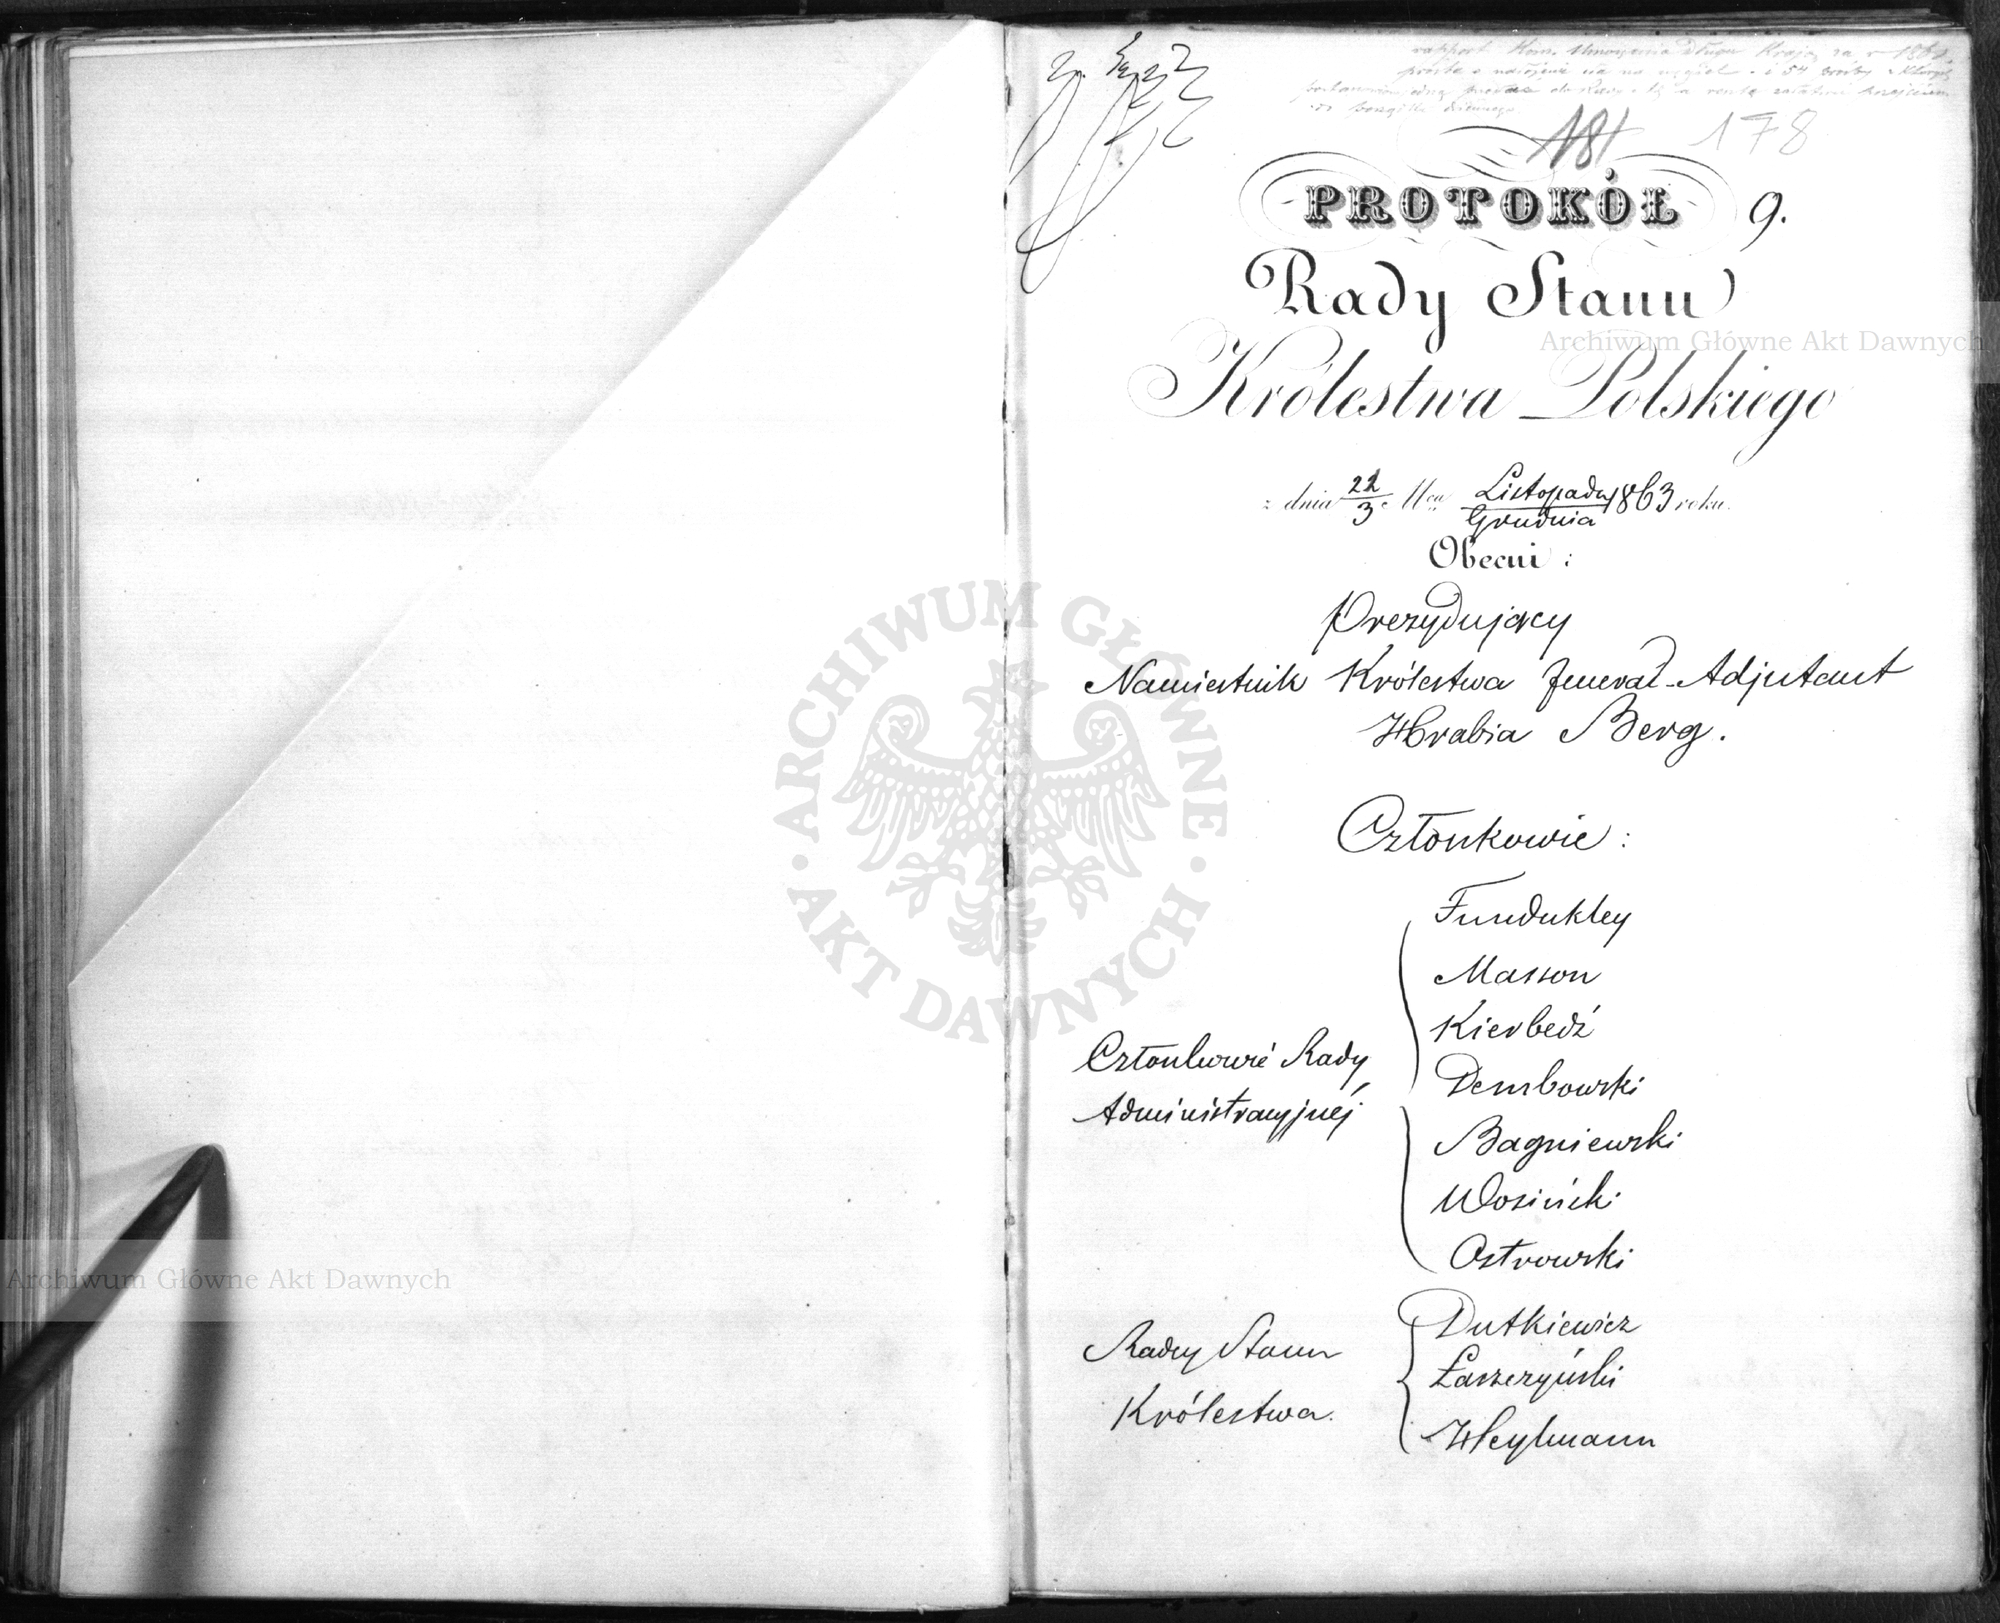 rapport Kom. Umorzenia Długu Kraj. za r 186
181 178
PROTOKÓŁ 9.
Rady Stanu
Królestwa Polskiego
z dnia 22/3 Mca Listopada/Grudnia 1863 roku.
Obecni:
Prezydujący
Namiestnik Królestwa Jenerał-Adjutant
Hrabia Berg.
Członkowie:
Fundukley
Masson
Kierbedź
Dembowski
Członkowie Rady
Administracyjnéj
Bagniewski
Wosiński
Ostrowski
Radcy Stanu
Królestwa.
Dutkiewicz
Łaszczyński
Heylmann
Archiwum Główne Akt Dawnych
ARCHIWUM GŁÓWNE AKT DAWNYCH
Archiwum Główne Akt Dawnych